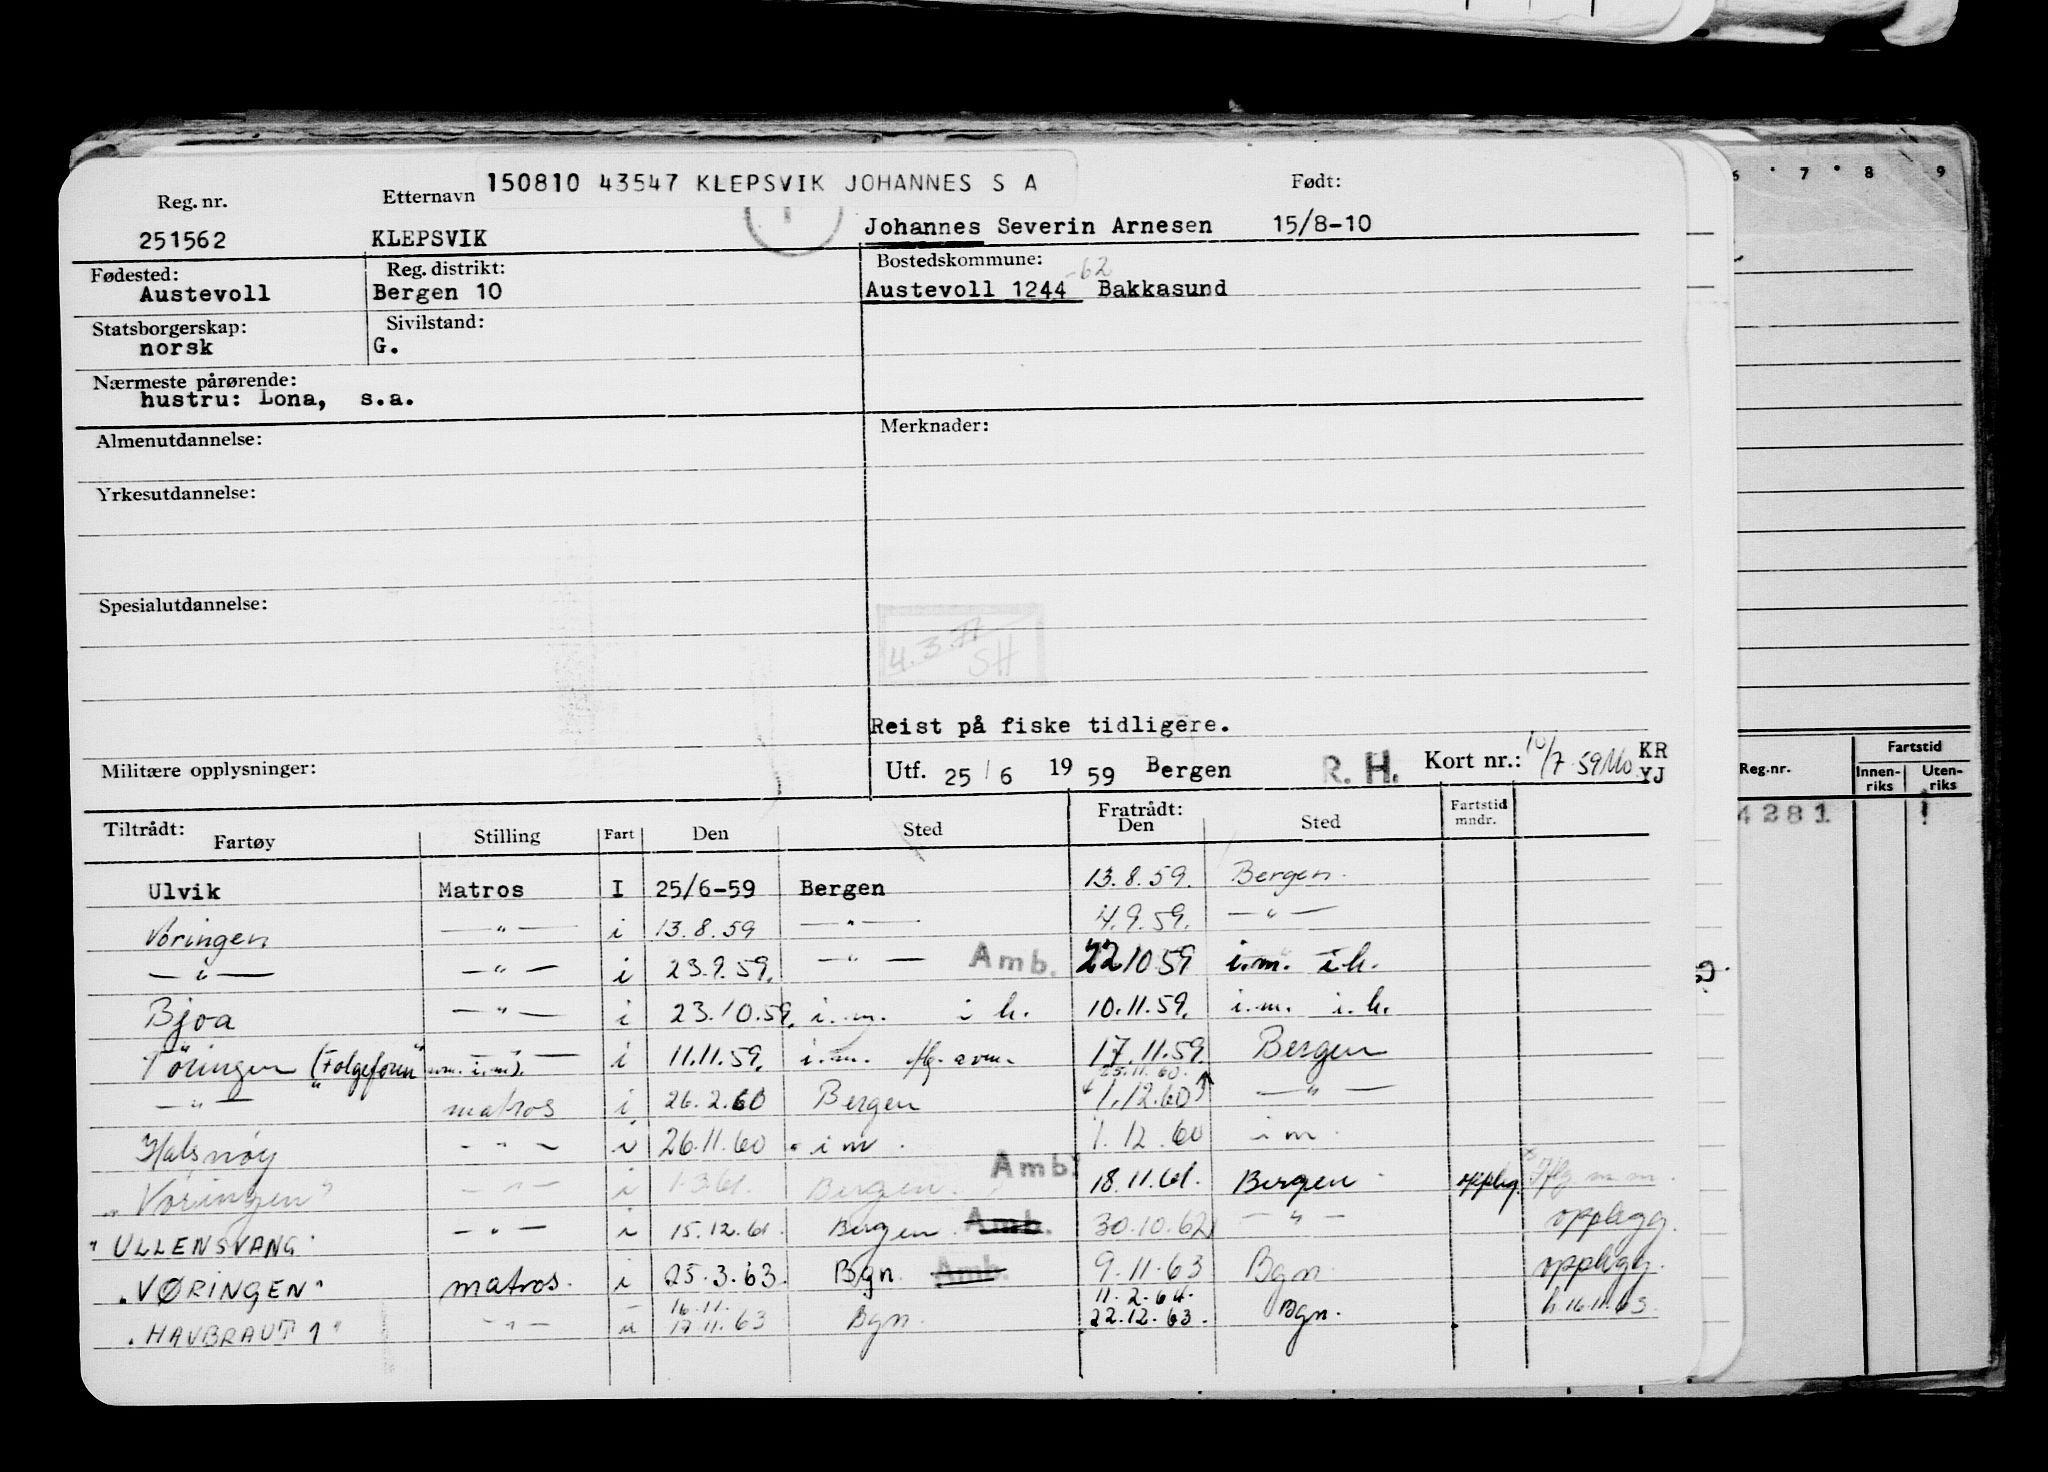 150810 43547 KLEPSVIK JOHANNES S A
Reg. nr. Etternavn Født:
251562 KLEPSVIK Johannes Severin Arnesen 15/8-10
Fødested: Reg. distrikt: Bostedskommune: -62
Austevoll Bergen 10 Austevoll 1244 Bakkasund
Statsborgerskap: Sivilstand:
norsk G.
Nærmeste pårørende:
hustru: Lona, s.a.
Almenutdannelse: Merknader:
Yrkesutdannelse:
Spesialutdannelse:
4.3.77
SH
Reist på fiske tidligere.
Militære opplysninger: Utf. 25/6 1959 Bergen R. H. Kort nr.: 10/7-59 Mo KR
YJ
Tiltrådt: Fratrådt: Fartstid
Fartøy Stilling Fart Den Sted Den Sted mndr.
Ulvik Matros I 25/6-59 Bergen 13.8.59. Bergen.
Vöringen —"— i 13.8.59 —"— 4.9.59. —"—
—"— —"— i 23.9.59. —"— Amb. 22.10.59 i.m. i.h.
Bjoa —"— i 23.10.59. i.m. i h. 10.11.59. i.m. i.h.
Vöringen ("Folgefonn" i.m). —"— i 11.11.59. i.m. 17.11.59. Bergen
25.11.60.
—"— matros i 26.2.60 Bergen 1.12.60 —"—
Halsnøy - " - i 26.11.60 i m. 1.12.60 i m.
"Vöringen" - " - i 1.3.61. Bergen. Amb. 18.11.61. Bergen opplag.
"ULLENSVANG" - " - i 15.12.61. Bergen. Amb. 30.10.62 - " - opplegg.
"VØRINGEN" matros. i 25.3.63. Bgn. Amb. 9.11.63 Bgn. opplegg.
16.11. 11.2.64.
"HAVBRAUT 1" - " - u 17.11.63 Bgn. 22.12.63. Bgn. h. 16.11.63.
6 7 8 9
Reg.nr. Fartstid
Innen-riks Uten-riks
4281